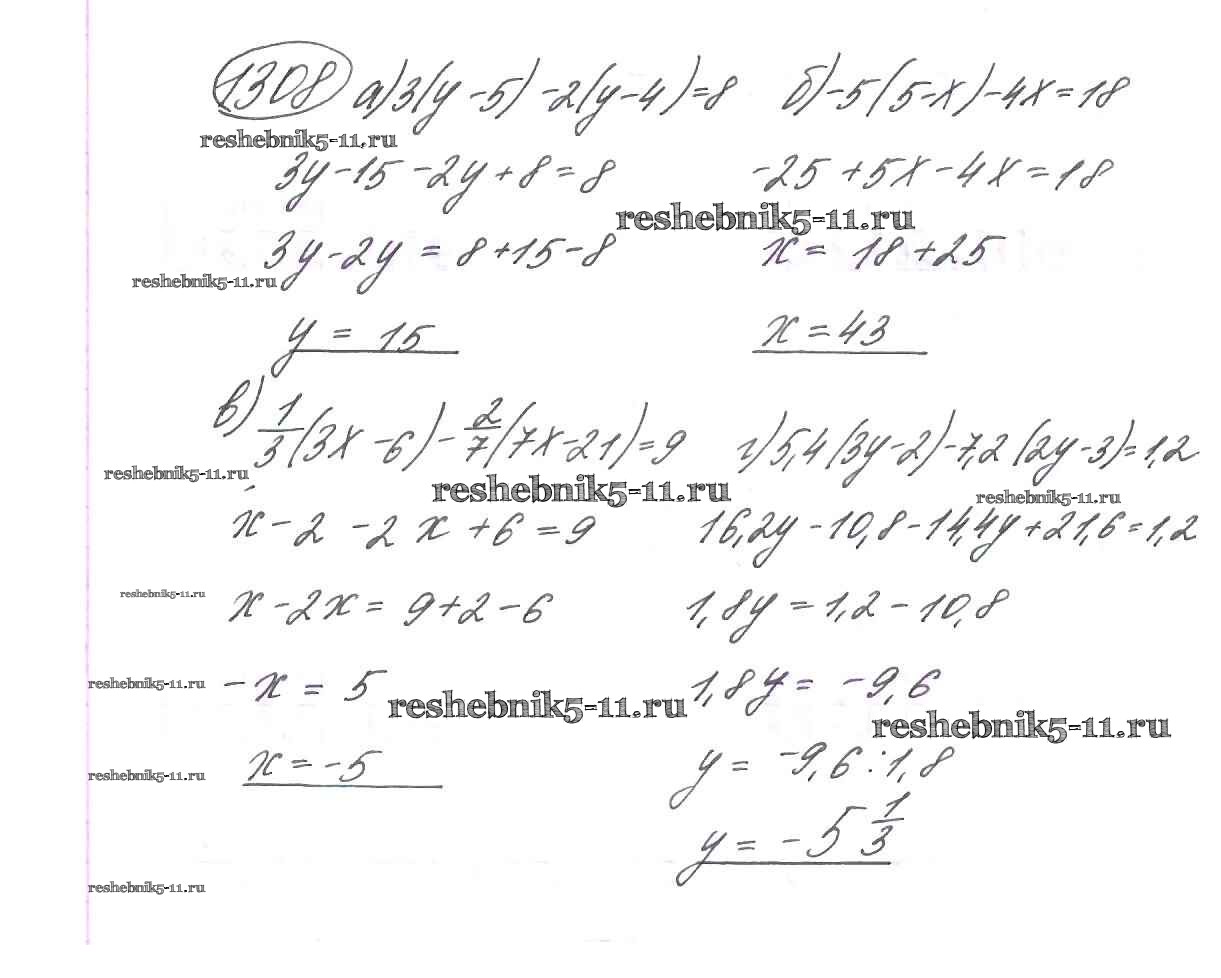 1308 а) 3(y-5)-2(y-4)=8 б) -5(5-x)-4x=18
reshebnik5-11.ru
3y-15-2y+8=8 -25+5x-4x=18
reshebnik5-11.ru
3y-2y=8+15-8 x=18+25
reshebnik5-11.ru
y=15 x=43
в) 1/3(3x-6)-2/7(7x-21)=9 г) 5,4(3y-2)-7,2(2y-3)=1,2
reshebnik5-11.ru
reshebnik5-11.ru
reshebnik5-11.ru
x-2-2x+6=9 16,2y-10,8-14,4y+21,6=1,2
reshebnik5-11.ru
x-2x=9+2-6 1,8y=1,2-10,8
reshebnik5-11.ru
-x=5 1,8y=-9,6
reshebnik5-11.ru
reshebnik5-11.ru
reshebnik5-11.ru
x=-5 y=-9,6:1,8
y=-5 1/3
reshebnik5-11.ru